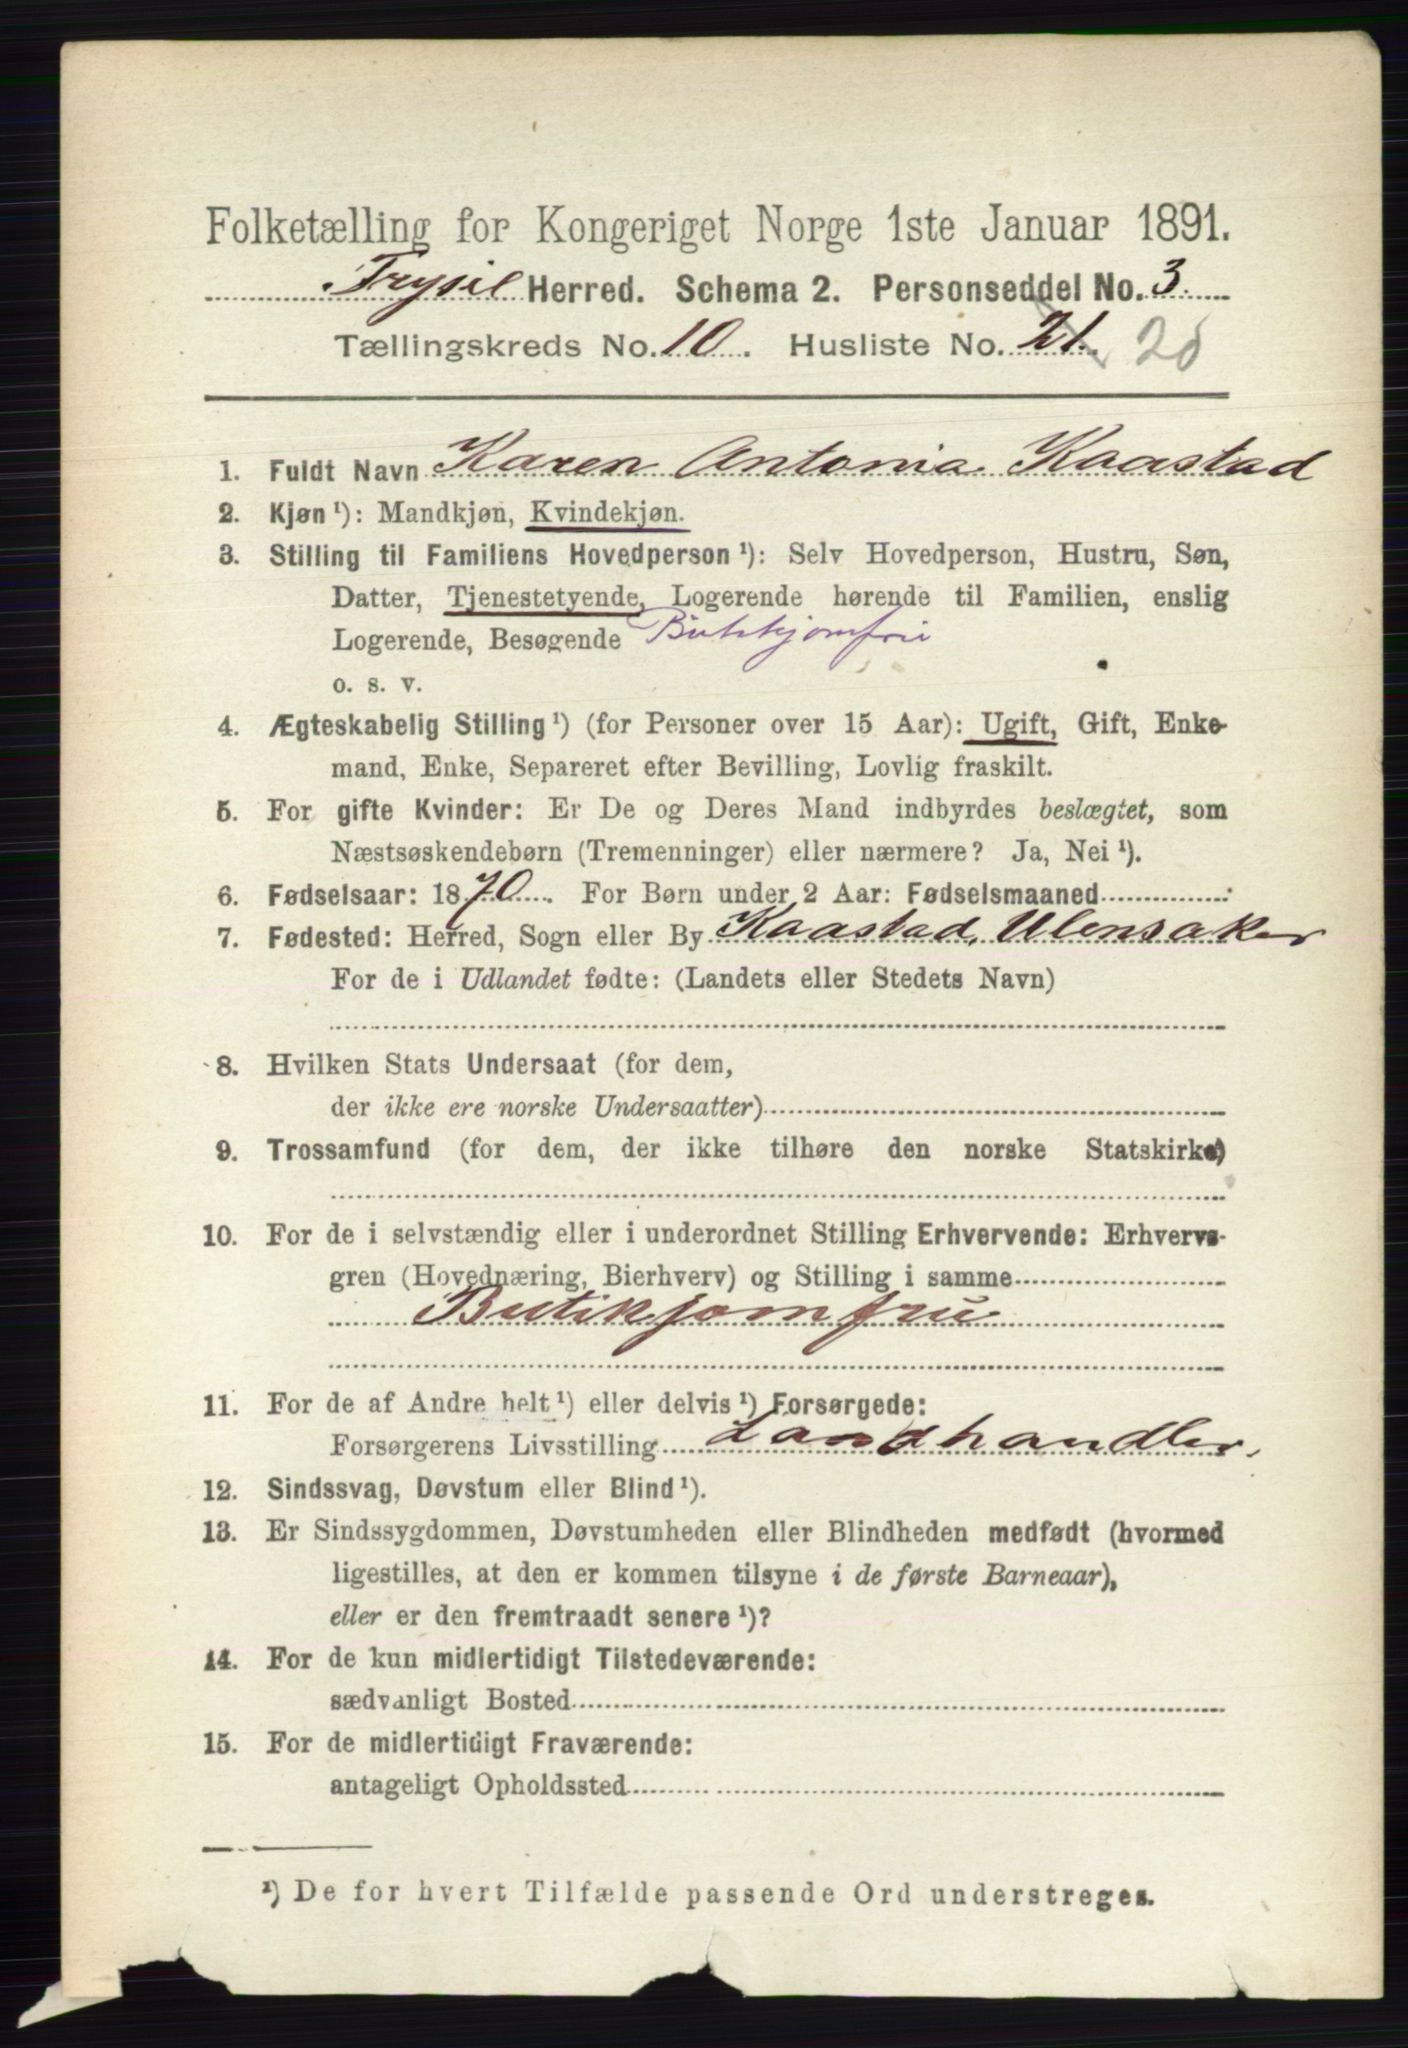 Folketælling for Kongeriget Norge 1ste Januar 1891.
Trysil Herred. Schema 2. Personseddel No. 3.
Tællingskreds No. 10. Husliste No. 21. 20
1. Fuldt Navn Karen Antonia Kaastad
2. Kjøn ¹): Mandkjøn, Kvindekjøn.
3. Stilling til Familiens Hovedperson ¹): Selv Hovedperson, Hustru, Søn,
Datter, Tjenestetyende, Logerende hørende til Familien, enslig
Logerende, Besøgende Butikjomfru
o. s. v.
4. Ægteskabelig Stilling ¹) (for Personer over 15 Aar): Ugift, Gift, Enke-
mand, Enke, Separeret efter Bevilling, Lovlig fraskilt.
5. For gifte Kvinder: Er De og Deres Mand indbyrdes beslægtet, som
Næstsøskendebørn (Tremenninger) eller nærmere? Ja, Nei ¹).
6. Fødselsaar: 1870. For Børn under 2 Aar: Fødselsmaaned
7. Fødested: Herred, Sogn eller By Kaastad, Ulensaker
For de i Udlandet fødte: (Landets eller Stedets Navn)
8. Hvilken Stats Undersaat (for dem,
der ikke ere norske Undersaatter)
9. Trossamfund (for dem, der ikke tilhøre den norske Statskirke)
10. For de i selvstændig eller i underordnet Stilling Erhvervende: Erhvervs-
gren (Hovednæring, Bierhverv) og Stilling i samme
Butikjomfru
11. For de af Andre helt ¹) eller delvis ¹) Forsørgede:
Forsørgerens Livsstilling Landhandler.
12. Sindssvag, Døvstum eller Blind ¹).
13. Er Sindssygdommen, Døvstumheden eller Blindheden medfødt (hvormed
ligestilles, at den er kommen tilsyne i de første Barneaar),
eller er den fremtraadt senere ¹)?
14. For de kun midlertidigt Tilstedeværende:
sædvanligt Bosted
15. For de midlertidigt Fraværende:
antageligt Opholdssted
¹) De for hvert Tilfælde passende Ord understreges.